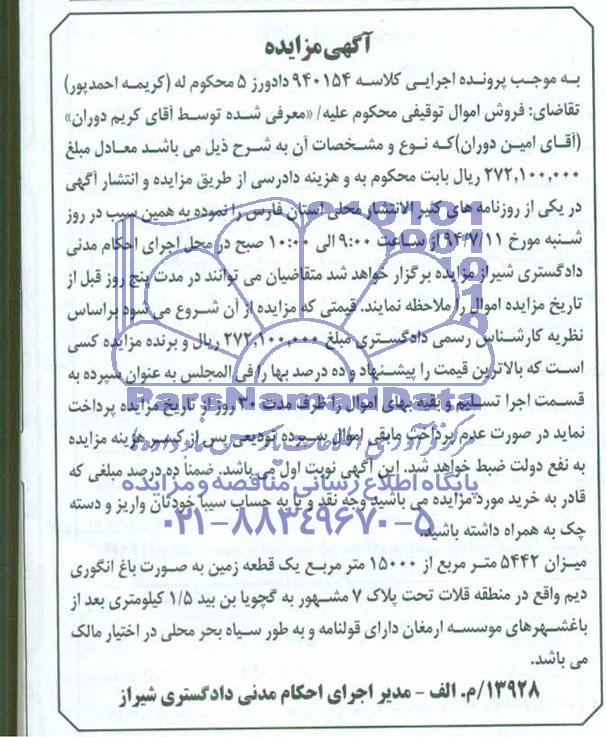 آگهی مزایده
به موجب پرونده اجرایی کلاسه ۹۴۰۱۵۴ دادورز ۵ محکوم له (کریمه احمدپور)
تقاضای: فروش اموال توقیفی محکوم علیه/ «معرفی شده توسط آقای کریم دوران»
(آقای امین دوران) که نوع و مشخصات آن به شرح ذیل می باشد معادل مبلغ
۲۷۲,۱۰۰,۰۰۰ ریال بابت محکوم به و هزینه دادرسی از طریق مزایده و انتشار آگهی
در یکی از روزنامه های کثیر الانتشار محلی استان فارس را نموده به همین سبب در روز
شنبه مورخ ۹۴/۷/۱۱ از ساعت ۹:۰۰ الی ۱۰:۰۰ صبح در محل اجرای احکام مدنی
دادگستری شیراز مزایده برگزار خواهد شد متقاضیان می توانند در مدت پنج روز قبل از
تاریخ مزایده اموال را ملاحظه نمایند. قیمتی که مزایده از آن شروع می شود براساس
نظریه کارشناس رسمی دادگستری مبلغ ۲۷۲,۱۰۰,۰۰۰ ریال و برنده مزایده کسی
است که بالاترین قیمت را پیشنهاد و ده درصد بها را فی المجلس به عنوان سپرده به
ParsNamadData
قسمت اجرا تسلیم و بقیه بهای اموال را ظرف مدت ۳۰ روز از تاریخ مزایده پرداخت
نماید در صورت عدم پرداخت مابقی اموال سپرده تودیعی پس از کسر هزینه مزایده
به نفع دولت ضبط خواهد شد. این آگهی نوبت اول می باشد. ضمناً ده درصد مبلغی که
پایگاه اطلاع رسانی مناقصه و مزایده
قادر به خرید مورد مزایده می باشید وجه نقد و یا به حساب سیبا خودتان واریز و دسته
۰۲۱-۸۸۳۴۹۶۷۰-۵
چک به همراه داشته باشید.
میزان ۵۴۴۲ متر مربع از ۱۵۰۰۰ متر مربع یک قطعه زمین به صورت باغ انگوری
دیم واقع در منطقه قلات تحت پلاک ۷ مشهور به گچویا بن بید ۱/۵ کیلومتری بعد از
باغشهرهای موسسه ارمغان دارای قولنامه و به طور سیاه بحر محلی در اختیار مالک
می باشد.
۱۳۹۲۸/م. الف - مدیر اجرای احکام مدنی دادگستری شیراز